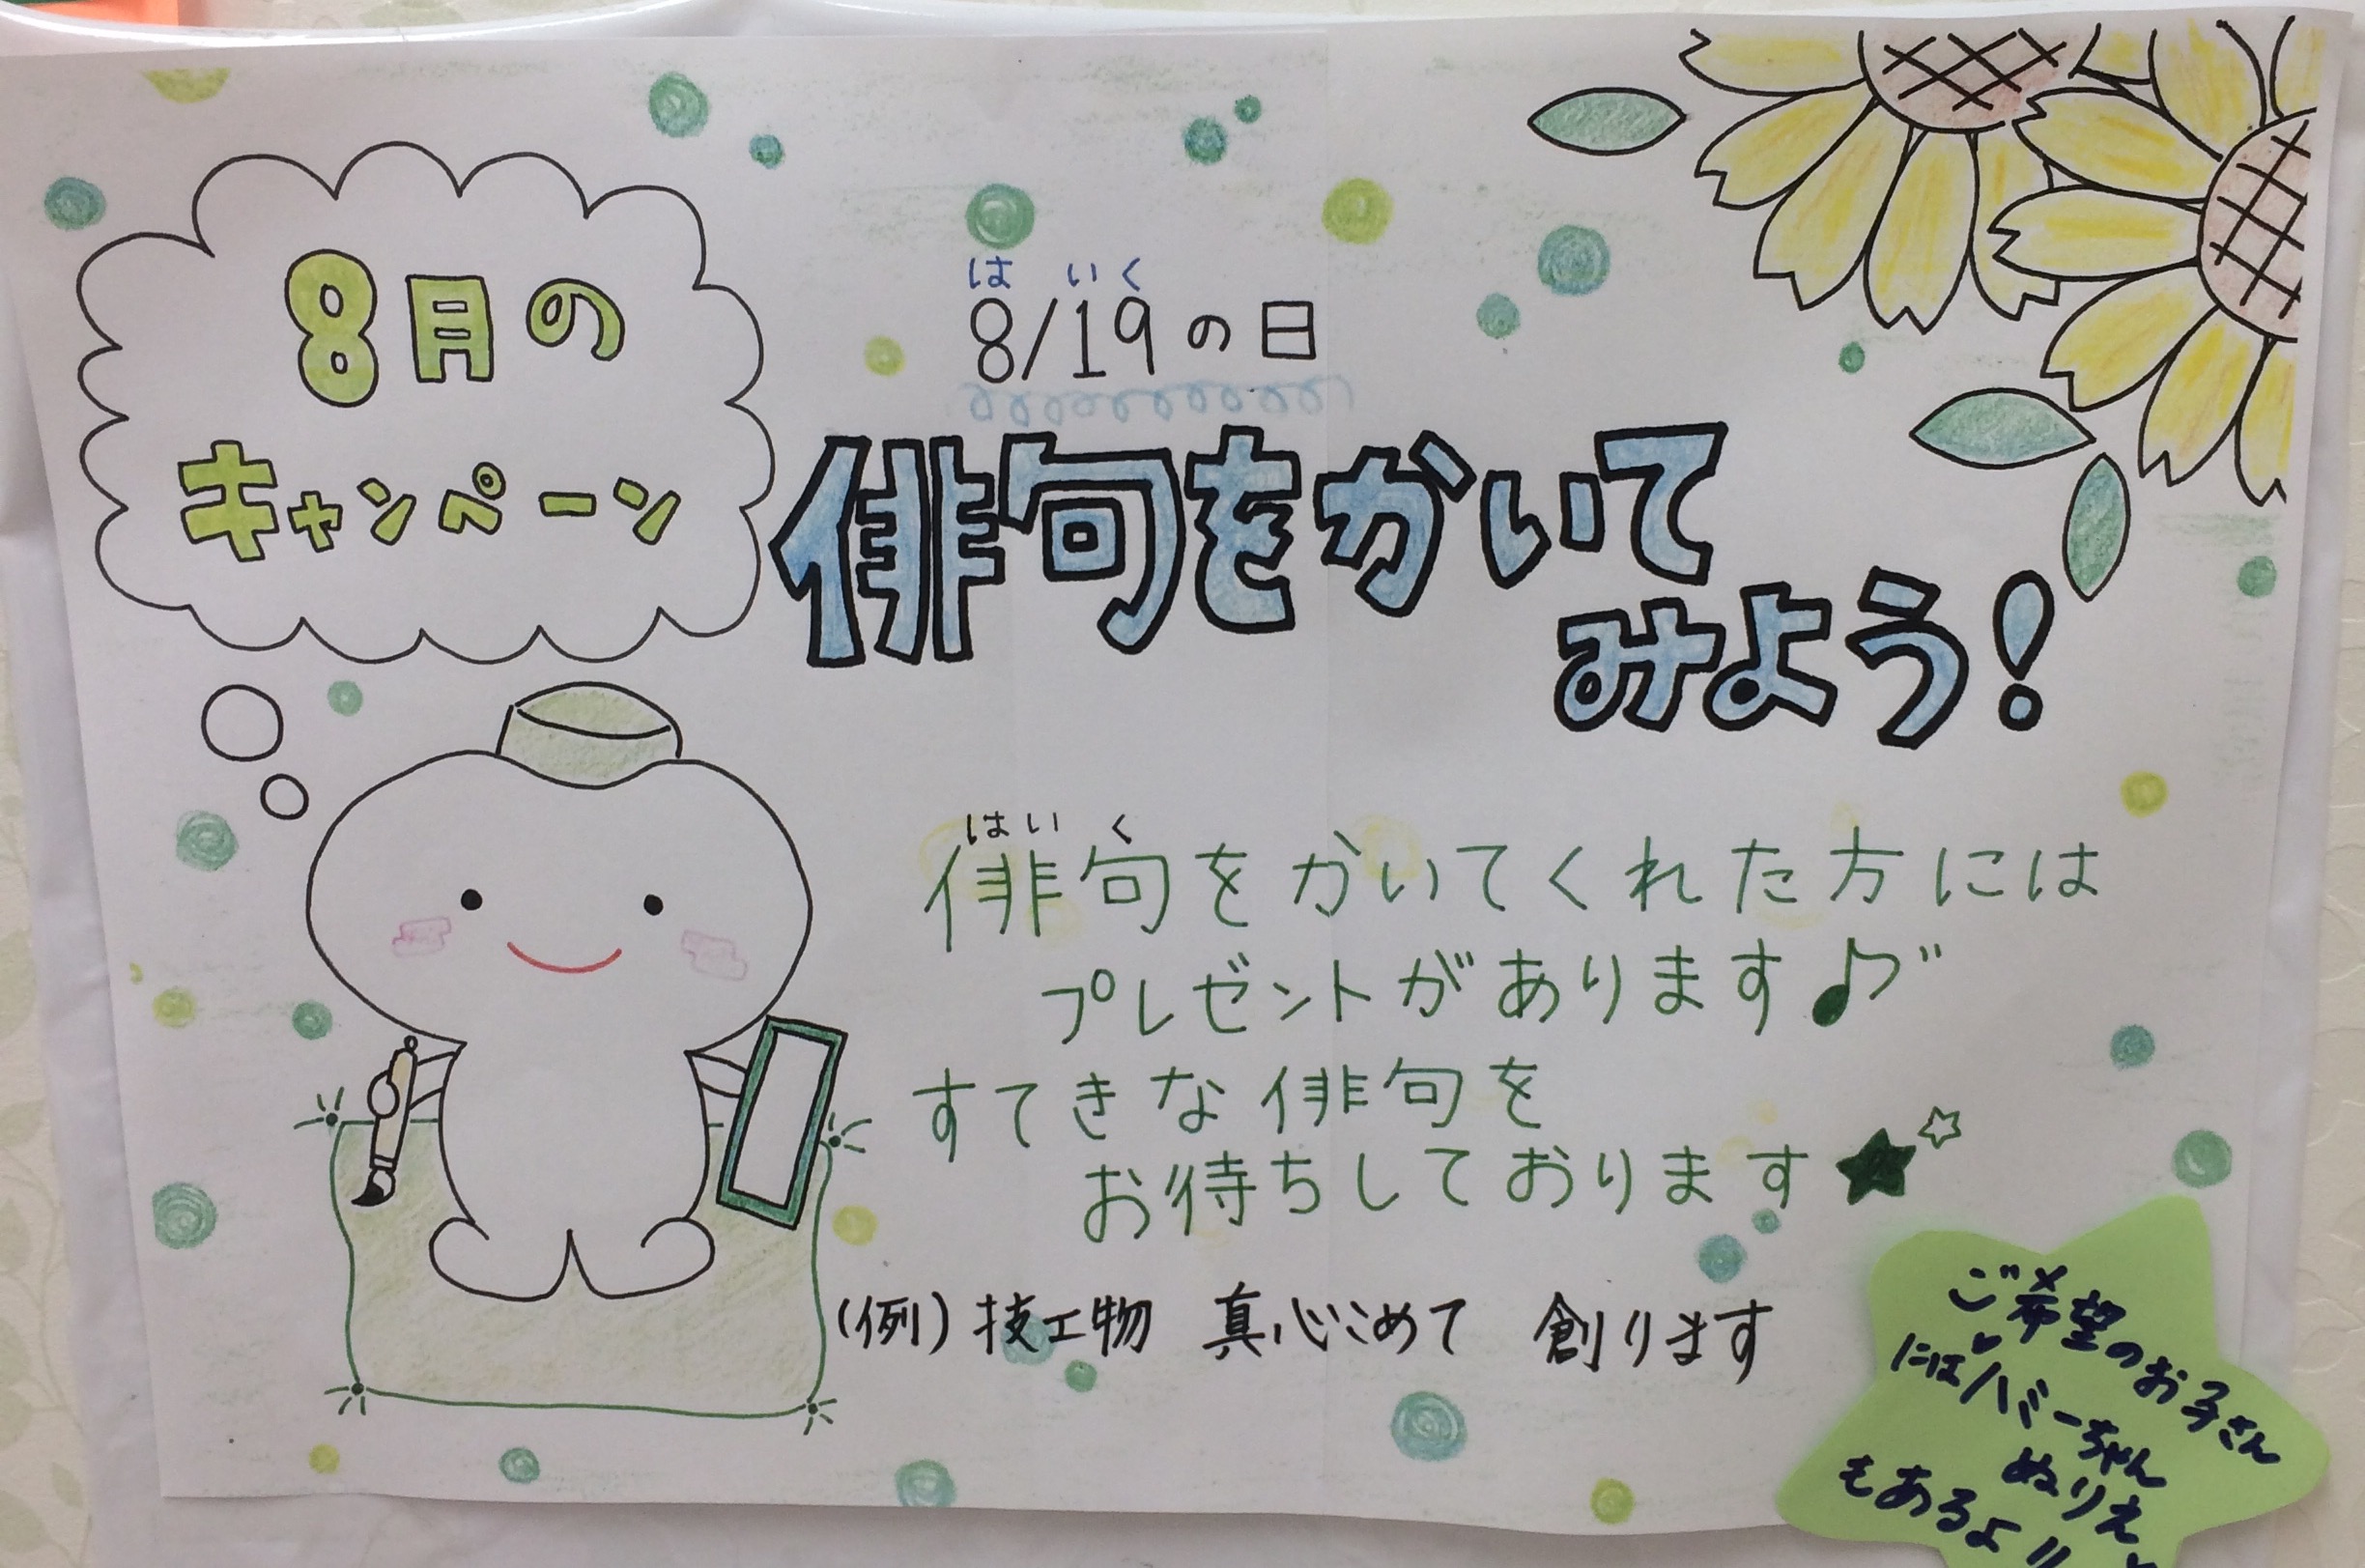 8月の
キャンペーン
はいく
8/19の日
俳句をかいて
みよう!
はいく
俳句をかいてくれた方には
プレゼントがあります♪
すてきな俳句を
お待ちしております★☆
(例)技工物 真心こめて 創ります
ご希望のお子さん
にはハミーちゃん
ぬりえ
もあるよ!!